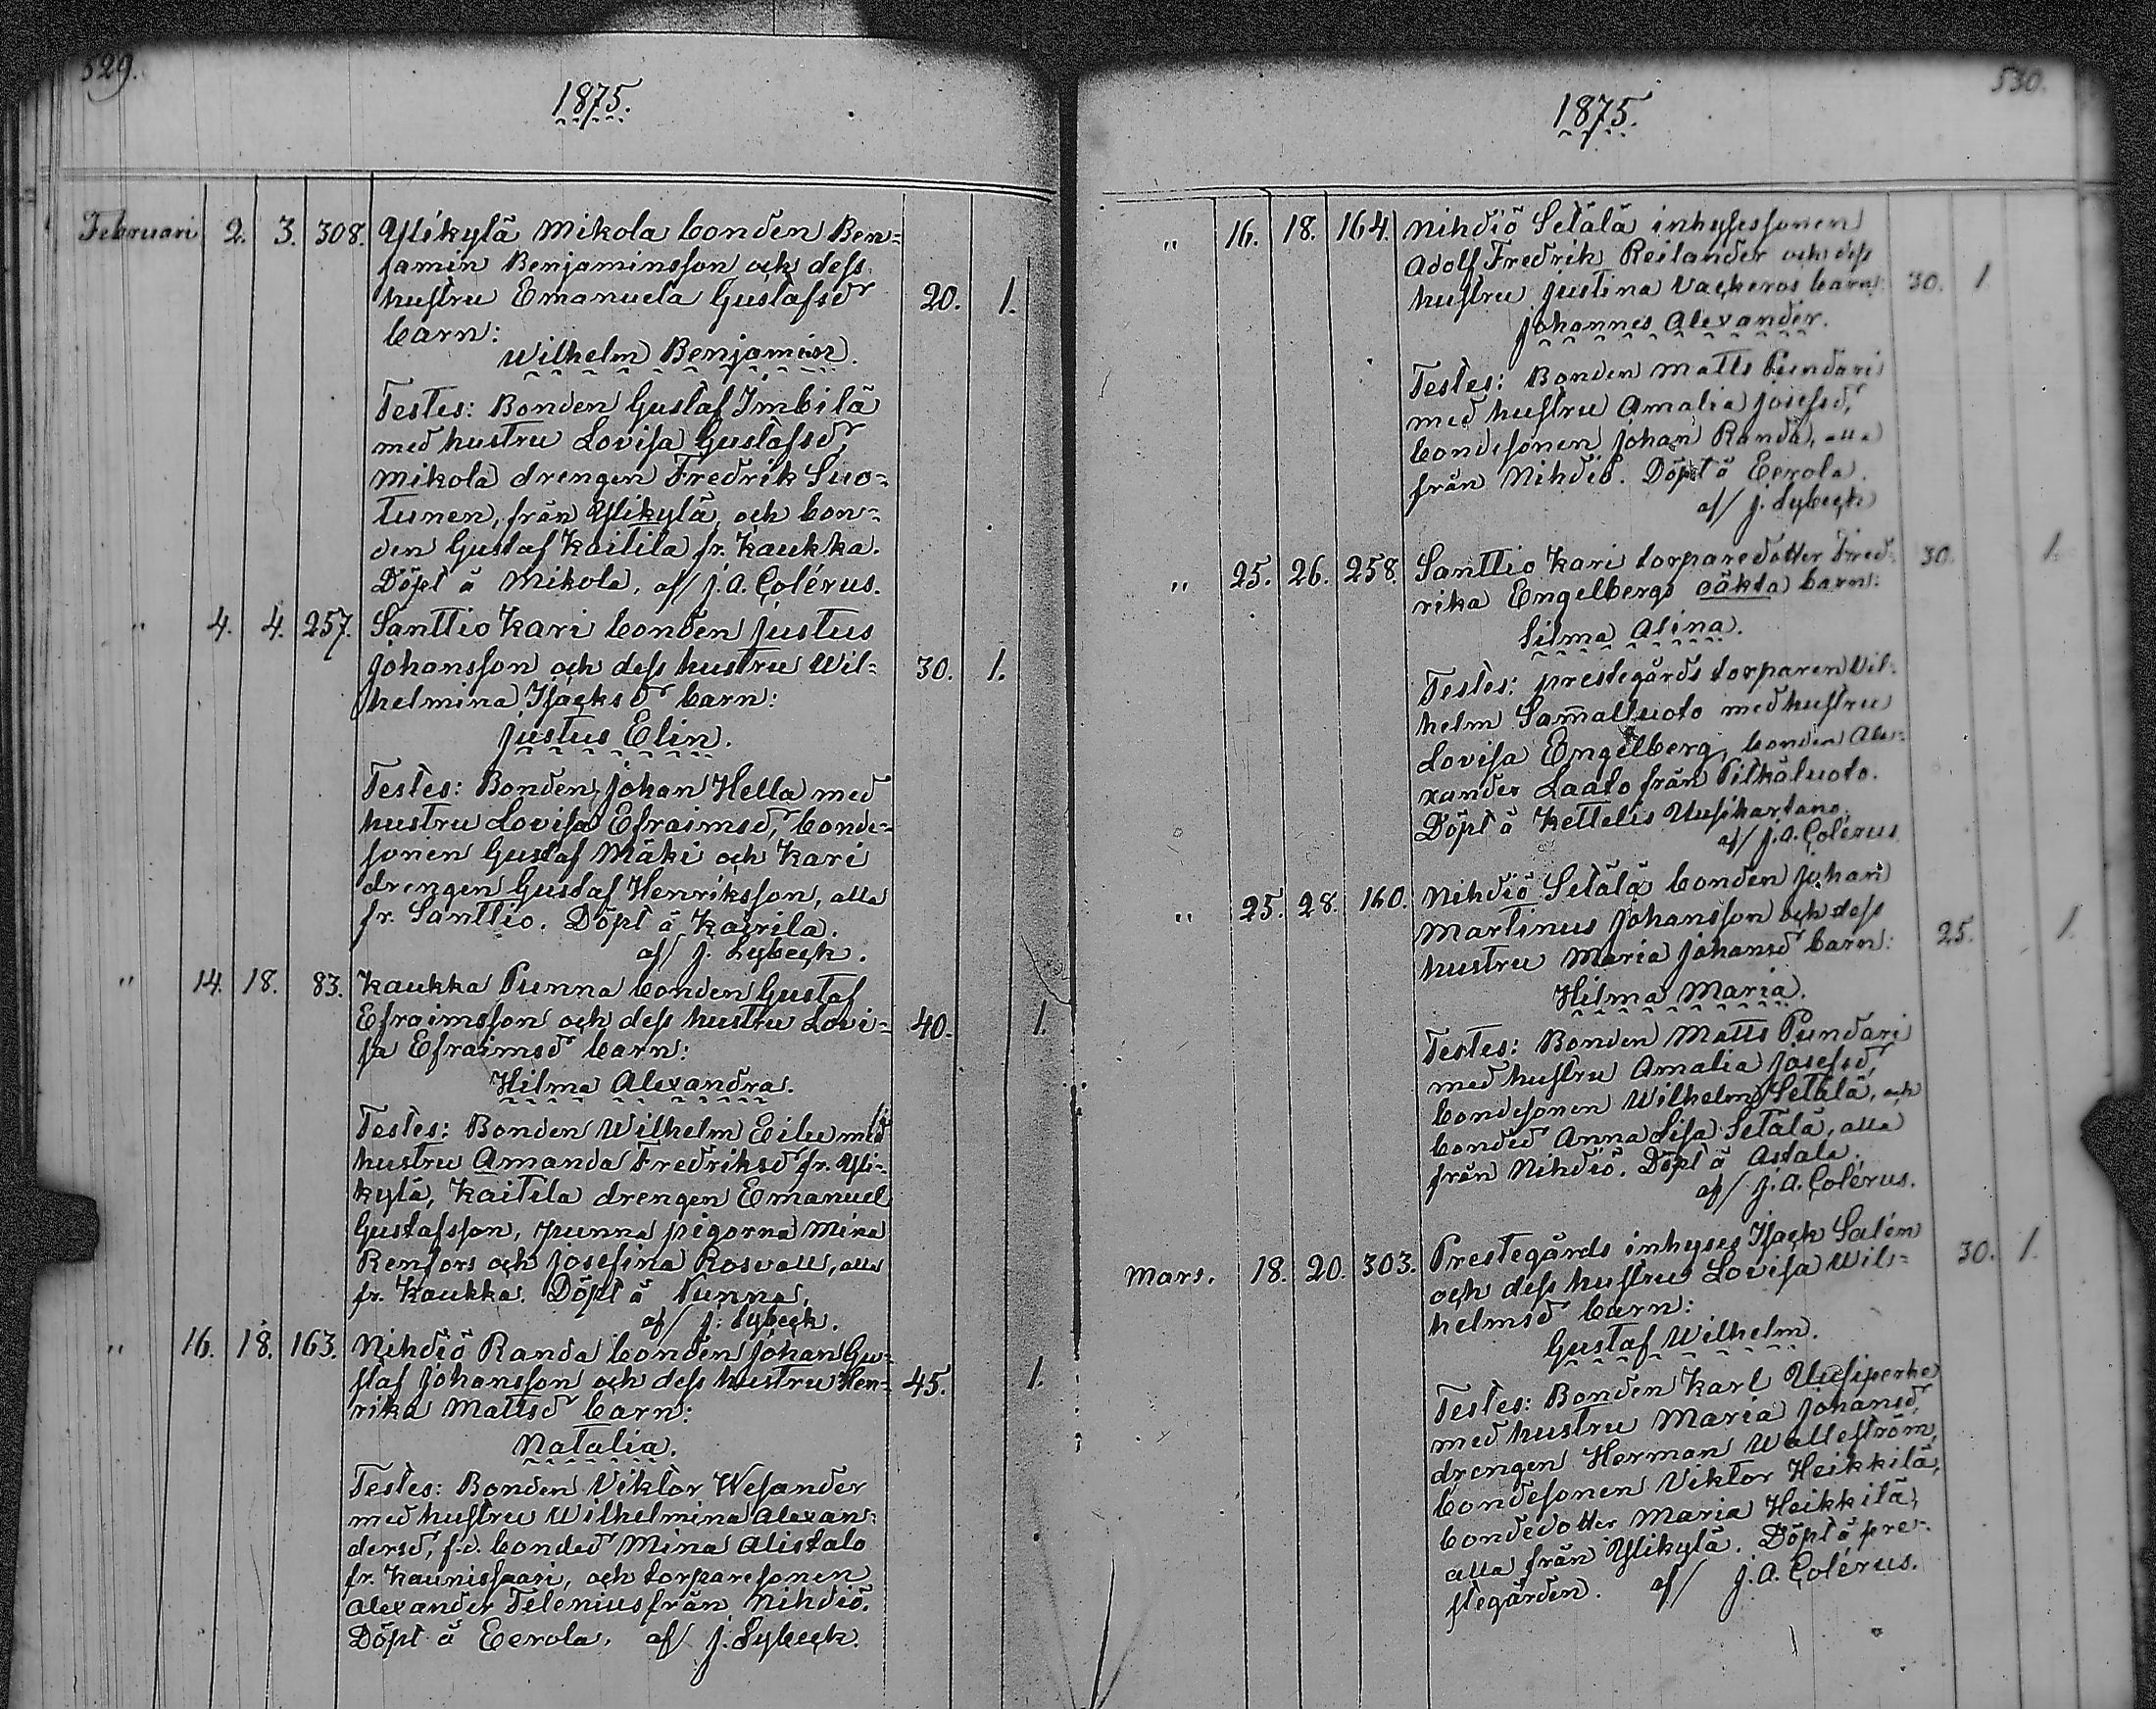 529.
1875.
Februari 2. 3. 308. Ylikylä Mikola bonden Ben-
jamin Benjaminsson och dess
hustru Emanuela Gustafsdr 20. 1.
barn:
Wilhelm Benjamin.
Testes: Bonden Gustaf Imbilä
med hustru Lovisa Gustafsdr,
Mikola drengen Fredrik Suo-
tunen, från Ylikylä, och bon-
den Gustaf Kaitila fr. Kaukka.
Döpt å Mikola, af/ J. A. Colérus.
" 4. 4. 257. Santtio Kari bonden Justus
Johansson och dess hustru Wil- 30. 1.
helmina Isacksdr barn:
Justus Elin.
Testes: Bonden Johan Hella med
hustru Lovisa Efraimsdr, bonde-
sonen Gustaf Mäki och Kari
drengen Gustaf Henriksson, alla
fr. Santtio. Döpt å Kairila.
af/ J. Lybeck.
" 14. 18. 83. Kaukka Punna bonden Gustaf
Efraimsson och dess hustru Lovi- 40. 1.
sa Efraimsdr barn:
Hilma Alexandra.
Testes: Bonden Wilhelm Eilu med
hustru Amanda Fredriksdr fr. Yli-
kylä, Kaitila drengen Emanuel
Gustafsson, Punna pigorna Mina
Renfors och Josefina Rosvall, alla
fr. Kaukka. Döpt å Punna,
af/ J. Lybeck.
" 16. 18. 163. Nihdiö Randa bonden Johan Gu-
staf Johansson och dess hustru Hen- 45. 1.
rika Mattsdr barn:
Natalia.
Testes: Bonden Viktor Wesander
med hustru Wilhelmina Alexan-
dersdr, f.d. bonded Mina Alistalo
fr. Kaunissaari, och torparesonen
Alexander Telenius från Nihdiö.
Döpt å Eerola, af/ J. Lybeck.
530.
1875.
" 16. 18. 164. Nihdiö Setälä inhysessonen
Adolf Fredrik Reilander och dess
hustru Justina Vackeros barn: 30. 1.
Johannes Alexander.
Testes: Bonden Matts Pundari
med hustru Amalia Josefsdr,
bondesonen Johan Randa, alla
från Nihdiö. Döpt å Eerola.
af/ J. Lybeck
" 25. 26. 258. Santtio Kari torparedotter Fred- 30. 1.
rika Engelbergs oäkta barn:
Silma Alina.
Testes: prestegårds torparen Vil-
helm Sammalluoto med hustru
Lovisa Engelberg, bonden Ale-
xander Laato från Pitkäluoto.
Döpt å Kettelis Uusikartano,
af/ J. A. Colérus
" 25. 28. 160. Nihdiö Setälä bonden Johan
Martinus Johansson och dess
hustru Maria Johansdr barn: 25. 1.
Hilma Maria.
Testes: Bonden Matts Pundari
med hustru Amalia Josefsdr,
bondesonen Wilhelm Setälä, och
bonded Anna Lisa Setälä, alla
från Nihdiö. Döpt å Astala.
af/ J. A. Colérus.
Mars. 18. 20. 303. Prestegårds inhyses Isack Salén 30. 1.
och dess hustru Lovisa Wil-
helmsdr barn:
Gustaf Wilhelm.
Testes: Bonden Karl Uusiperhe
med hustru Maria Johansdr,
drengen Herman Walleström,
bondesonen Viktor Heikkilä,
bondedotter Maria Heikkilä,
alla från Ylikylä. Döpt å pre-
stegården. af/ J. A. Colérus.